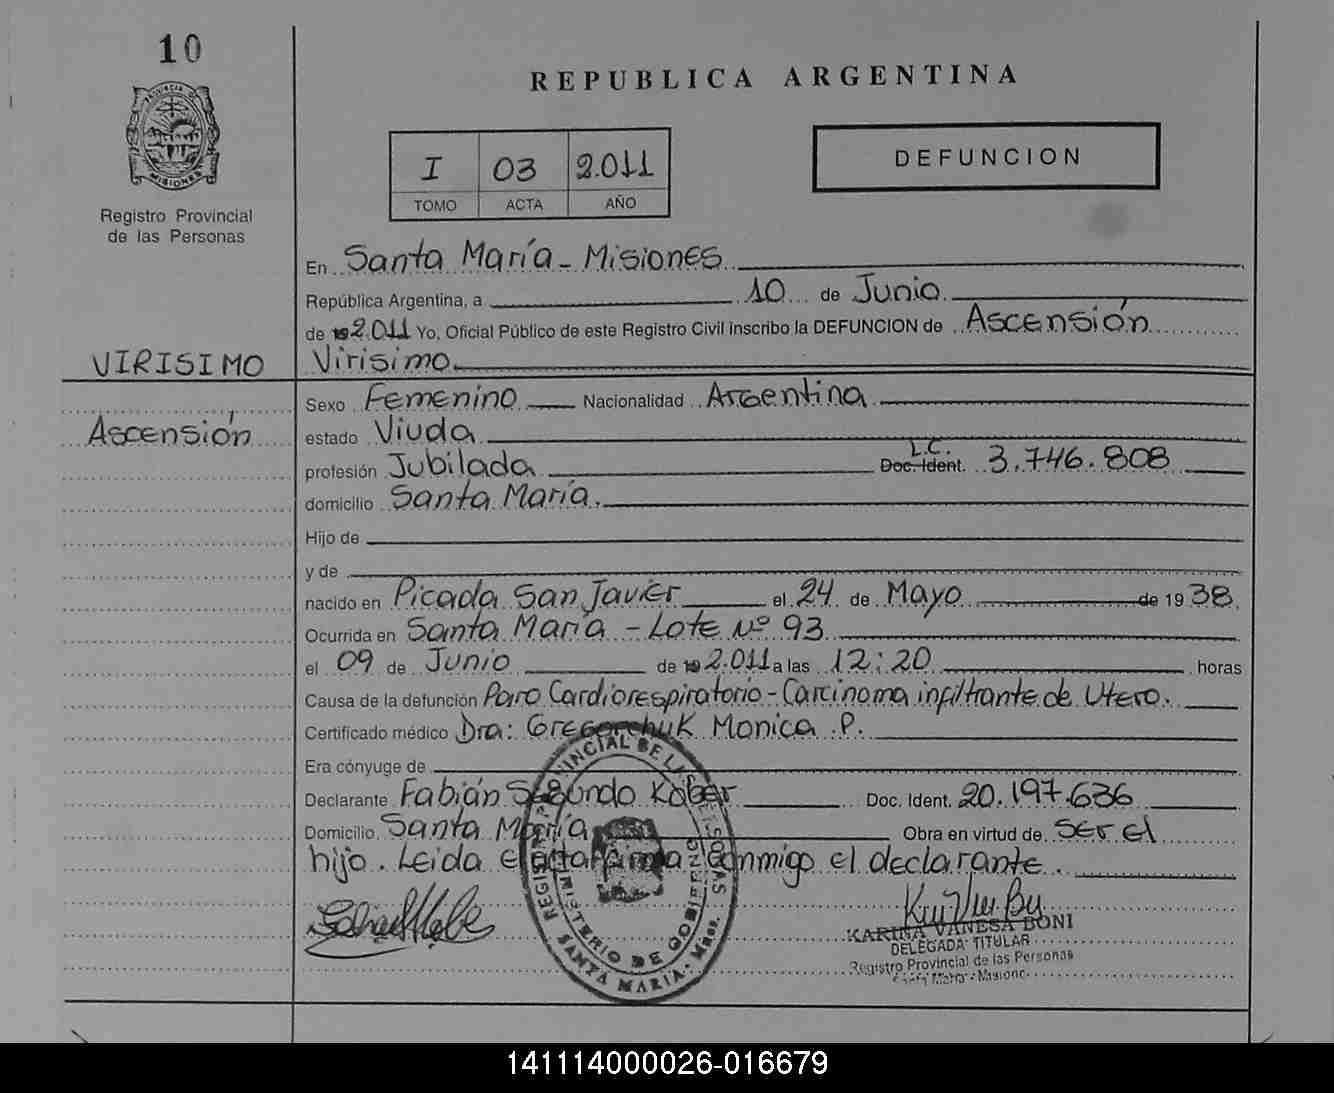 10
PROVINCIA DE
MISIONES
Registro Provincial
de las Personas
REPUBLICA ARGENTINA
I 03 2.011
TOMO ACTA AÑO
DEFUNCION
En Santa María - Misiones
República Argentina, a 10 de Junio
de 19 2.011 Yo, Oficial Público de este Registro Civil inscribo la DEFUNCION de Ascensión
VIRISIMO
Virisimo
Ascensión
Sexo Femenino Nacionalidad Argentina
estado Viuda
L.C.
profesión Jubilada Doc. Ident. 3.746.808
domicilio Santa María.
Hijo de
y de
nacido en Picada San Javier el 24 de Mayo de 1938.
Ocurrida en Santa María - Lote Nº 93
el 09 de Junio de 19 2.011 a las 12:20 horas
Causa de la defunción Paro Cardiorespiratorio - Carcinoma infiltrante de Utero.
Certificado médico Dra: Gregorchuk Monica P.
Era cónyuge de
Declarante Fabián Segundo Kober Doc. Ident. 20.197.636
Domicilio Santa María Obra en virtud de Ser el
hijo. Leida el acta firma conmigo el declarante.
REGISTRO PROVINCIAL DE LAS PERSONAS
MINISTERIO DE GOBIERNO
SANTA MARIA - Mnes.
KARINA VANESA BONI
DELEGADA TITULAR
Registro Provincial de las Personas
Santa María - Misiones
141114000026-016679